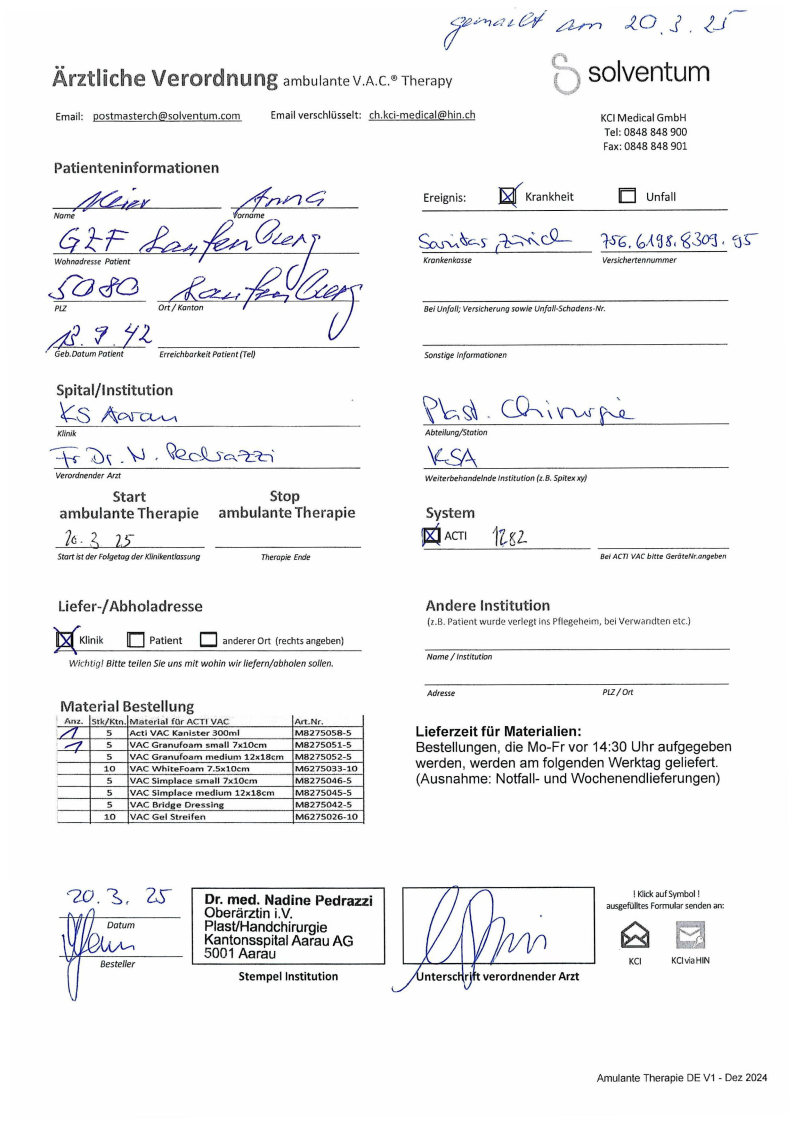 gemailt am 20.3.25
Ärztliche Verordnung ambulante V.A.C.® Therapy
solventum
Email: postmasterch@solventum.com Email verschlüsselt: ch.kci-medical@hin.ch
KCI Medical GmbH
Tel: 0848 848 900
Fax: 0848 848 901
Patienteninformationen
Meier Anna
Name Vorname
Ereignis: Krankheit Unfall
GZF Laufenburg
Wohnadresse Patient
Sanitas Zürich 756.6198.8309.95
Krankenkasse Versichertennummer
5080 Laufenburg
PLZ Ort / Kanton
Bei Unfall; Versicherung sowie Unfall-Schadens-Nr.
13.9.42
Geb.Datum Patient Erreichbarkeit Patient (Tel)
Sonstige Informationen
Spital/Institution
KS Aarau
Klinik
Plast. Chirurgie
Abteilung/Station
Fr Dr. N. Pedrazzi
Verordnender Arzt
KSA
Weiterbehandelnde Institution (z.B. Spitex xy)
Start ambulante Therapie
Stop ambulante Therapie
System
20.3 25
ACTI 1282
Start ist der Folgetag der Klinikentlassung Therapie Ende
Bei ACTI VAC bitte GeräteNr.angeben
Liefer-/Abholadresse
Klinik Patient anderer Ort (rechts angeben)
Wichtig! Bitte teilen Sie uns mit wohin wir liefern/abholen sollen.
Andere Institution
(z.B. Patient wurde verlegt ins Pflegeheim, bei Verwandten etc.)
Name / Institution
Adresse PLZ / Ort
Material Bestellung
Anz. Stk/Ktn. Material für ACTI VAC Art.Nr.
1 5 Acti VAC Kanister 300ml M8275058-5
1 5 VAC Granufoam small 7x10cm M8275051-5
5 VAC Granufoam medium 12x18cm M8275052-5
10 VAC WhiteFoam 7.5x10cm M6275033-10
5 VAC Simplace small 7x10cm M8275046-5
5 VAC Simplace medium 12x18cm M8275045-5
5 VAC Bridge Dressing M8275042-5
10 VAC Gel Streifen M6275026-10
Lieferzeit für Materialien:
Bestellungen, die Mo-Fr vor 14:30 Uhr aufgegeben
werden, werden am folgenden Werktag geliefert.
(Ausnahme: Notfall- und Wochenendlieferungen)
20.3.25
Datum
Besteller
Dr. med. Nadine Pedrazzi
Oberärztin i.V.
Plast/Handchirurgie
Kantonsspital Aarau AG
5001 Aarau
Stempel Institution
Unterschrift verordnender Arzt
! Klick auf Symbol !
ausgefülltes Formular senden an:
KCI KCI via HIN
Amulante Therapie DE V1 - Dez 2024